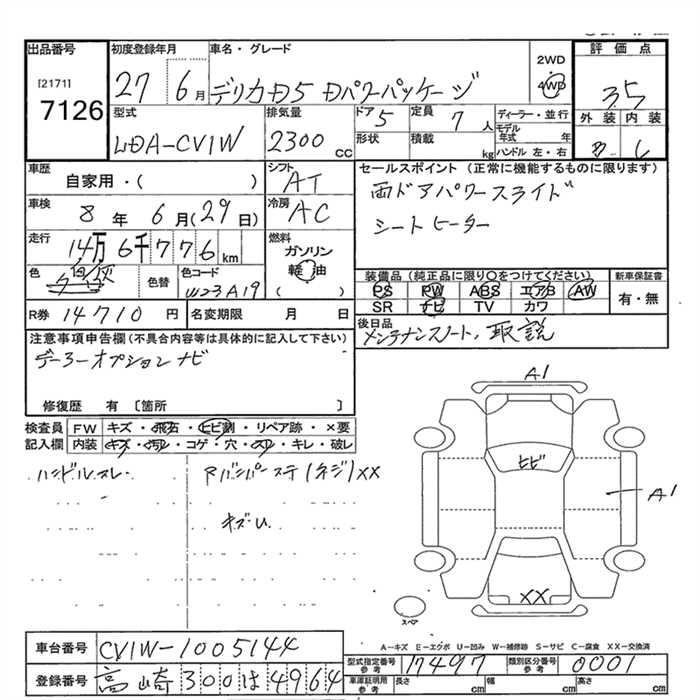 出品番号 初度登録年月 車名・グレード 評価点
[2171] 7126
27 6月 デリカD5 Dパワーパッケージ
2WD
4WD
3.5
型式 LDA-CV1W
排気量 2300 cc
ドア 5 定員 7人
形状 積載 kg
ディーラー・並行
モデル年式 年
ハンドル 左・右
外装 内装
車歴 自家用・( )
シフト AT
セールスポイント (正常に機能するものに限ります)
両ドアパワースライド
シートヒーター
車検 8年 6月(29日)
冷房 AC
走行 14万6千776km
燃料 ガソリン
軽油
( )
色 色替 色コード W23A19
R券 14710円 名変期限 月 日
装備品 (純正品に限り〇をつけてください) 新車保証書
PS PW ABS エアB AW
SR ナビ TV カワ
有・無
後日品
メンテナンスノート、取説
注意事項申告欄(不具合内容等は具体的に記入して下さい)
デーラーオプションナビ
修復歴 有 〔箇所 〕
検査員記入欄 FW キズ・飛石・ヒビ割・リペア跡・×要
内装 キズ・汚れ・コゲ・穴・スレ・キレ・破レ
ハンドルスレ
(ネジ)XX
キズU
A1
ヒビ
A1
XX
スペア
A-キズ E-エクボ U-凹み W-補修跡 S-サビ C-腐食 XX-交換済
車台番号 CV1W-1005144
登録番号 高崎300は4964
型式指定番号 参考 17497 類別区分番号 参考 0001
車庫証明用 参考 長さ cm 幅 cm 高さ cm